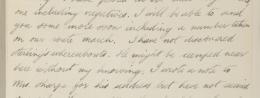 one including negatives. I will be able to send
you some more soon including a number taken
on our route march. I have not discovered
Stirling's whereabouts. He might be camped near
here without my knowing. I wrote a note to
Mrs George for his address but have not seen